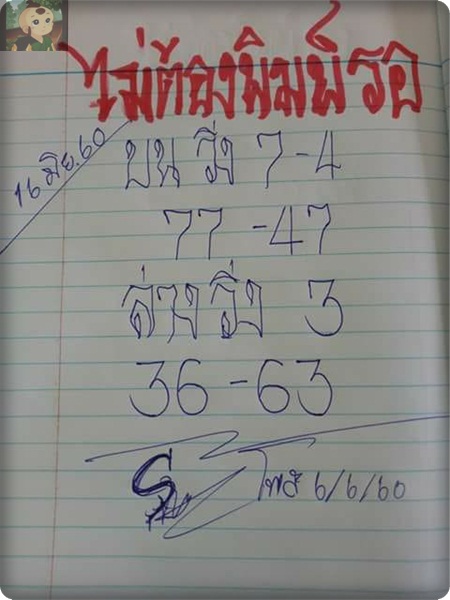 ไม่ต้องพิมพ์รอ
16 มิย. 60
บน วิ่ง 7-4
77-47
ล่าง วิ่ง 3
36-63
โพส 6/6/60